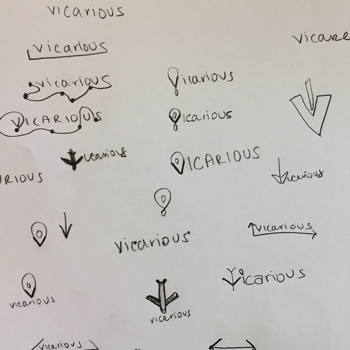 vicarious
vicarious
vicarious
VICARIOUS
vicarious
RIOUS
vicarious
vicarious
vicarious
vicarious
VICARIOUS
vicarious
vicarious
vicarious
vicarious
vicarious
vicarious